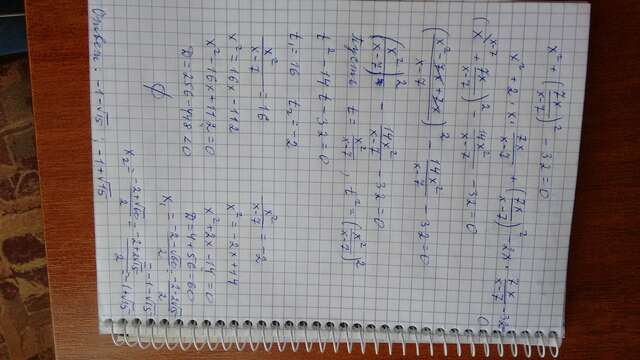 x² + (7x/(x-7))² - 32 = 0
x² + 2·x·7x/(x-7) + (7x/(x-7))² - 2x·7x/(x-7) - 32 = 0
(x + 7x/(x-7))² - 14x²/(x-7) - 32 = 0
((x² - 7x + 7x)/(x-7))² - 14x²/(x-7) - 32 = 0
(x²/(x-7))² - 14x²/(x-7) - 32 = 0
пусть t = x²/(x-7), t² = (x²/(x-7))²
t² - 14t - 32 = 0
t₁ = 16 t₂ = -2
x²/(x-7) = 16
x² = 16x - 112
x² - 16x + 112 = 0
D = 256 - 448 < 0
∅
x²/(x-7) = -2
x² = -2x + 14
x² + 2x - 14 = 0
D = 4 + 56 = 60
x₁ = (-2-√60)/2 = (-2-2√15)/2 = -1-√15
x₂ = (-2+√60)/2 = (-2+2√15)/2 = -1+√15
Ответ: -1-√15; -1+√15